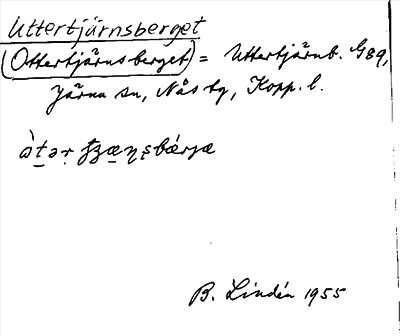 Uttertjärnsberget
(Ottertjärnsberget) = Uttertjärnb. G89,
Järna sn, Nås tg, Kopp. l.
B. Lindén 1955